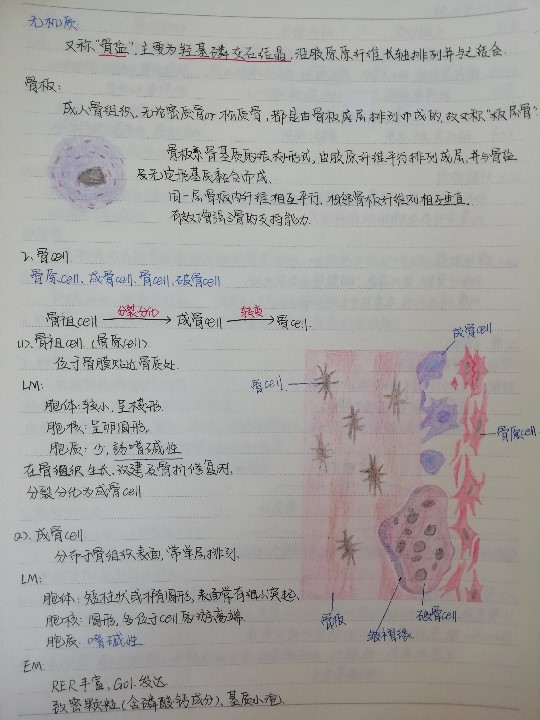 无机质:
又称"骨盐",主要为羟基磷灰石结晶,沿胶原原纤维长轴排列并与之结合.
骨板:
成人骨组织,无论密质骨or松质骨,都是由骨板成层排列而成的,故又称"板层骨".
骨板系骨基质的结构形式,由胶原纤维平行排列成层,并与骨盐
及无定形基质黏合而成.
同一层骨板内纤维相互平行,相邻骨板纤维则相互垂直.
有效增强了骨的支持能力.
2.骨cell
骨原cell、成骨cell、骨cell、破骨cell
骨祖cell 分裂分化 成骨cell 转变 骨cell.
(1).骨祖cell.(骨原cell)
位于骨膜贴近骨质处.
LM:
胞体:较小,呈梭形.
胞核:呈卵圆形.
胞质:少,弱嗜碱性
在骨组织生长、改建及骨折修复时,
分裂分化为成骨cell
成骨cell
骨cell
骨原cell
骨板
皱褶缘
破骨cell
(2).成骨cell
分布于骨组织表面,常单层排列.
LM:
胞体:矮柱状或不椭圆形,表面常有细小突起.
胞核:圆形,多位于cell的游离端.
胞质:嗜碱性
EM:
RER丰富,Gol.发达.
致密颗粒(含磷酸钙成分)、基质小泡.